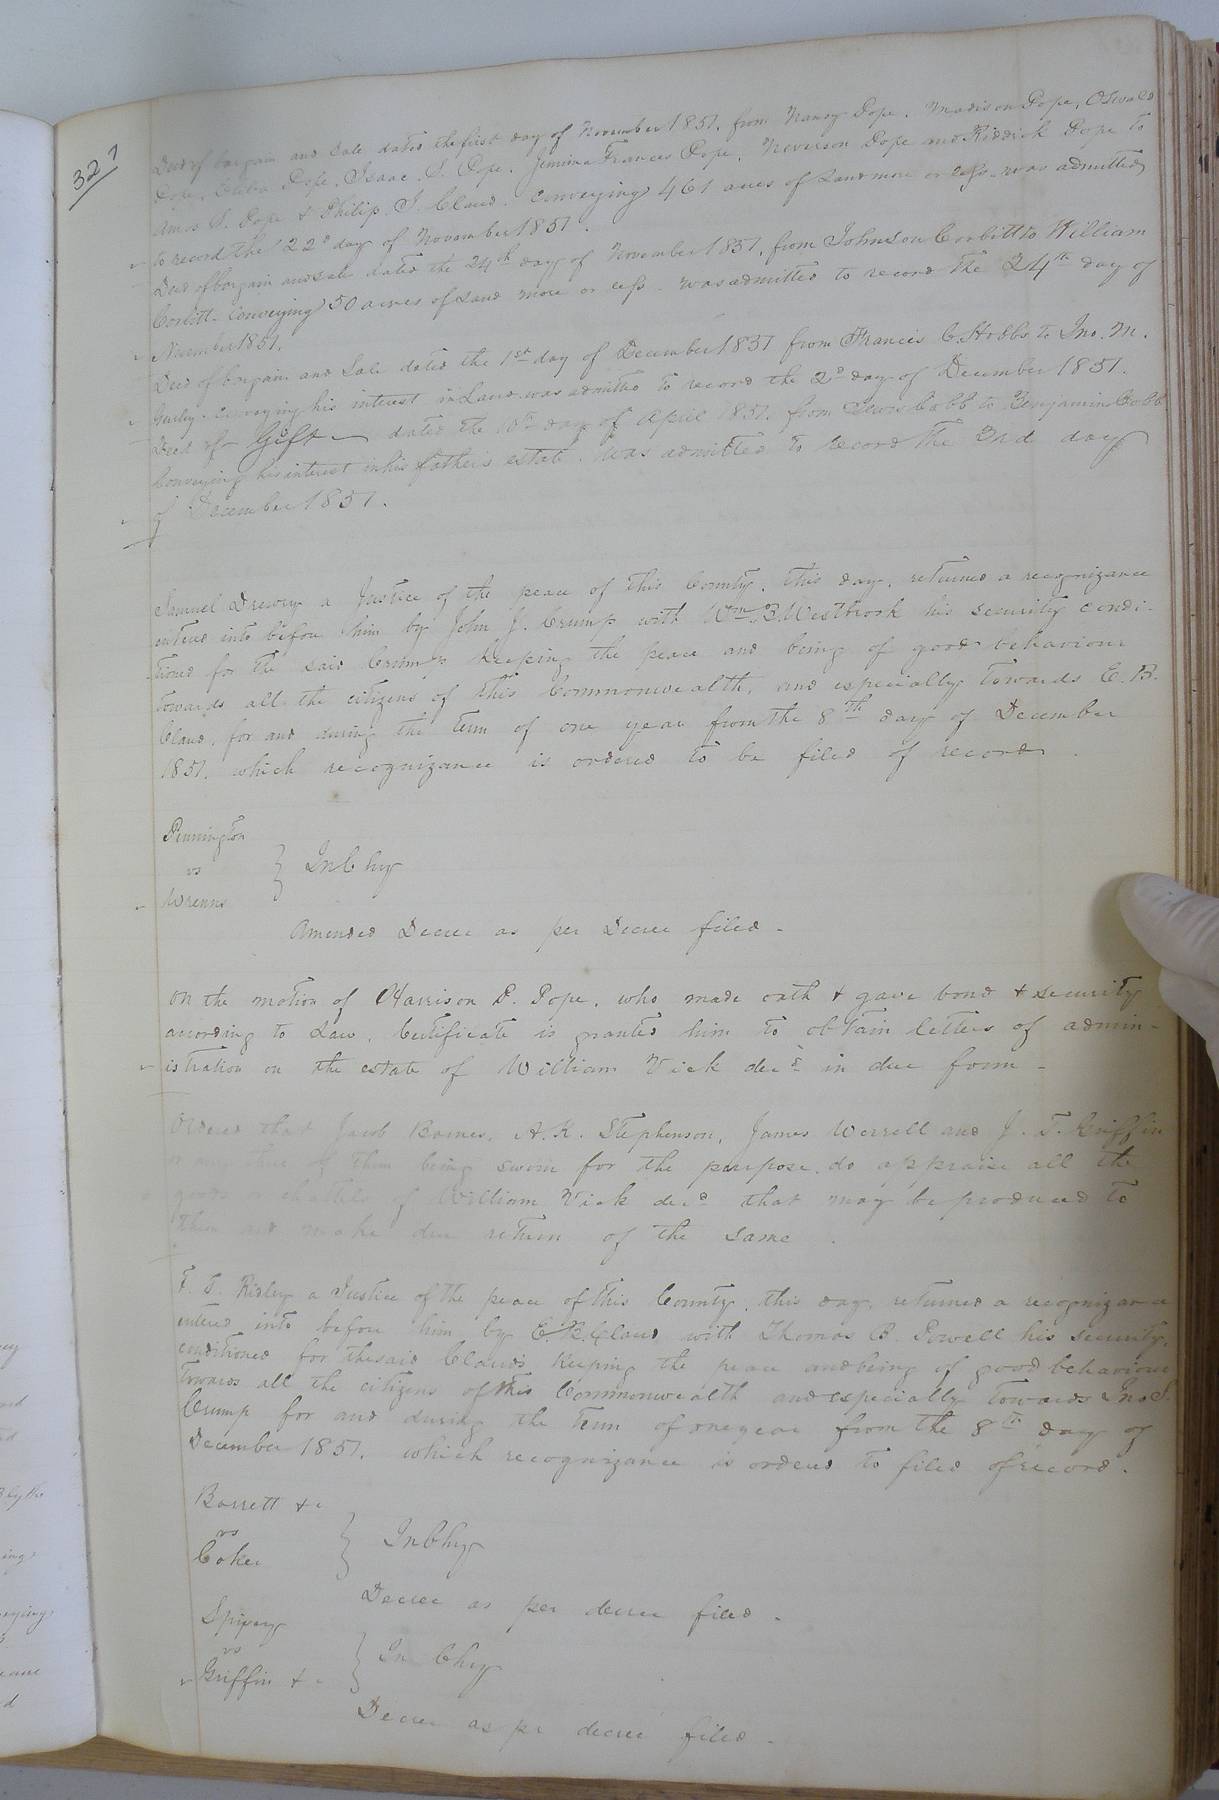 327
Deed of bargain and sale dated the first day of November 1851. from Nancy Pope, Madison Pope, Oswald
Pope, Pope, Isaac S. Pope, Jemima Frances Pope, Neverson Pope and Riddick Pope to
Amos S. Pope & Philip J. Claud. Conveying 461 acres of Land more or less. was admitted
to record the 22d day of November 1851.
Deed of bargain and sale dated the 24th day of November 1851, from Johnson Corbitt to William
Corbitt. Conveying 50 acres of Land more or less. was admitted to record the 24th day of
November 1851.
Deed of bargain and Sale dated the 1st day of December 1851 from Francis C. Hobbs to Jno. M.
Gurley. Conveying his interest in Land. was admitted to record the 2d day of December 1851.
Deed of Gift dated the 10th day of April 1851. from Lewis Cobb to Benjamin Cobb
Conveying his interest in his father's estate. was admitted to record the 3rd day
of December 1851.
Samuel Drewry a Justice of the peace of this County, this day, returned a recognizance
entered into before him by John J. Crump with Wm. B. Westbrook his security condi-
tioned for the said Crump's keeping the peace and being of good behaviour
towards all the citizens of this Commonwealth, and especially towards E. B.
Claud, for and during the term of one year from the 8th day of December
1851. which recognizance is ordered to be filed of record.
Pennington
vs } In Chy
Wrenns
Amended Decree as per Decree filed.
On the motion of Harrison P. Pope, who made oath & gave bond & security
according to Law, Certificate is granted him to obtain letters of admin-
istration on the estate of William Vick decd in due form.
Ordered that Jacob Barnes, A. K. Stephenson, James Worrell and J. T. Griffin
or any three of them being sworn for the purpose, do appraise all the
goods or chattels of William Vick decd that may be produced to
them and make due return of the same.
F. T. Ridley a Justice of the peace of this County, this day, returned a recognizance
entered into before him by E. B. Claud with Thomas B. Powell his security,
conditioned for the said Claud's Keeping the peace and being of good behaviour
towards all the citizens of this Commonwealth and especially towards Jno J.
Crump for and during the term of one year from the 8th day of
December 1851. which recognizance is ordered to filed of record.
Barrett &c
vs } In Chy
Coker
Decree as per decree filed.
Spivey
vs } In Chy
Griffin &c
Decree as pr decree filed.